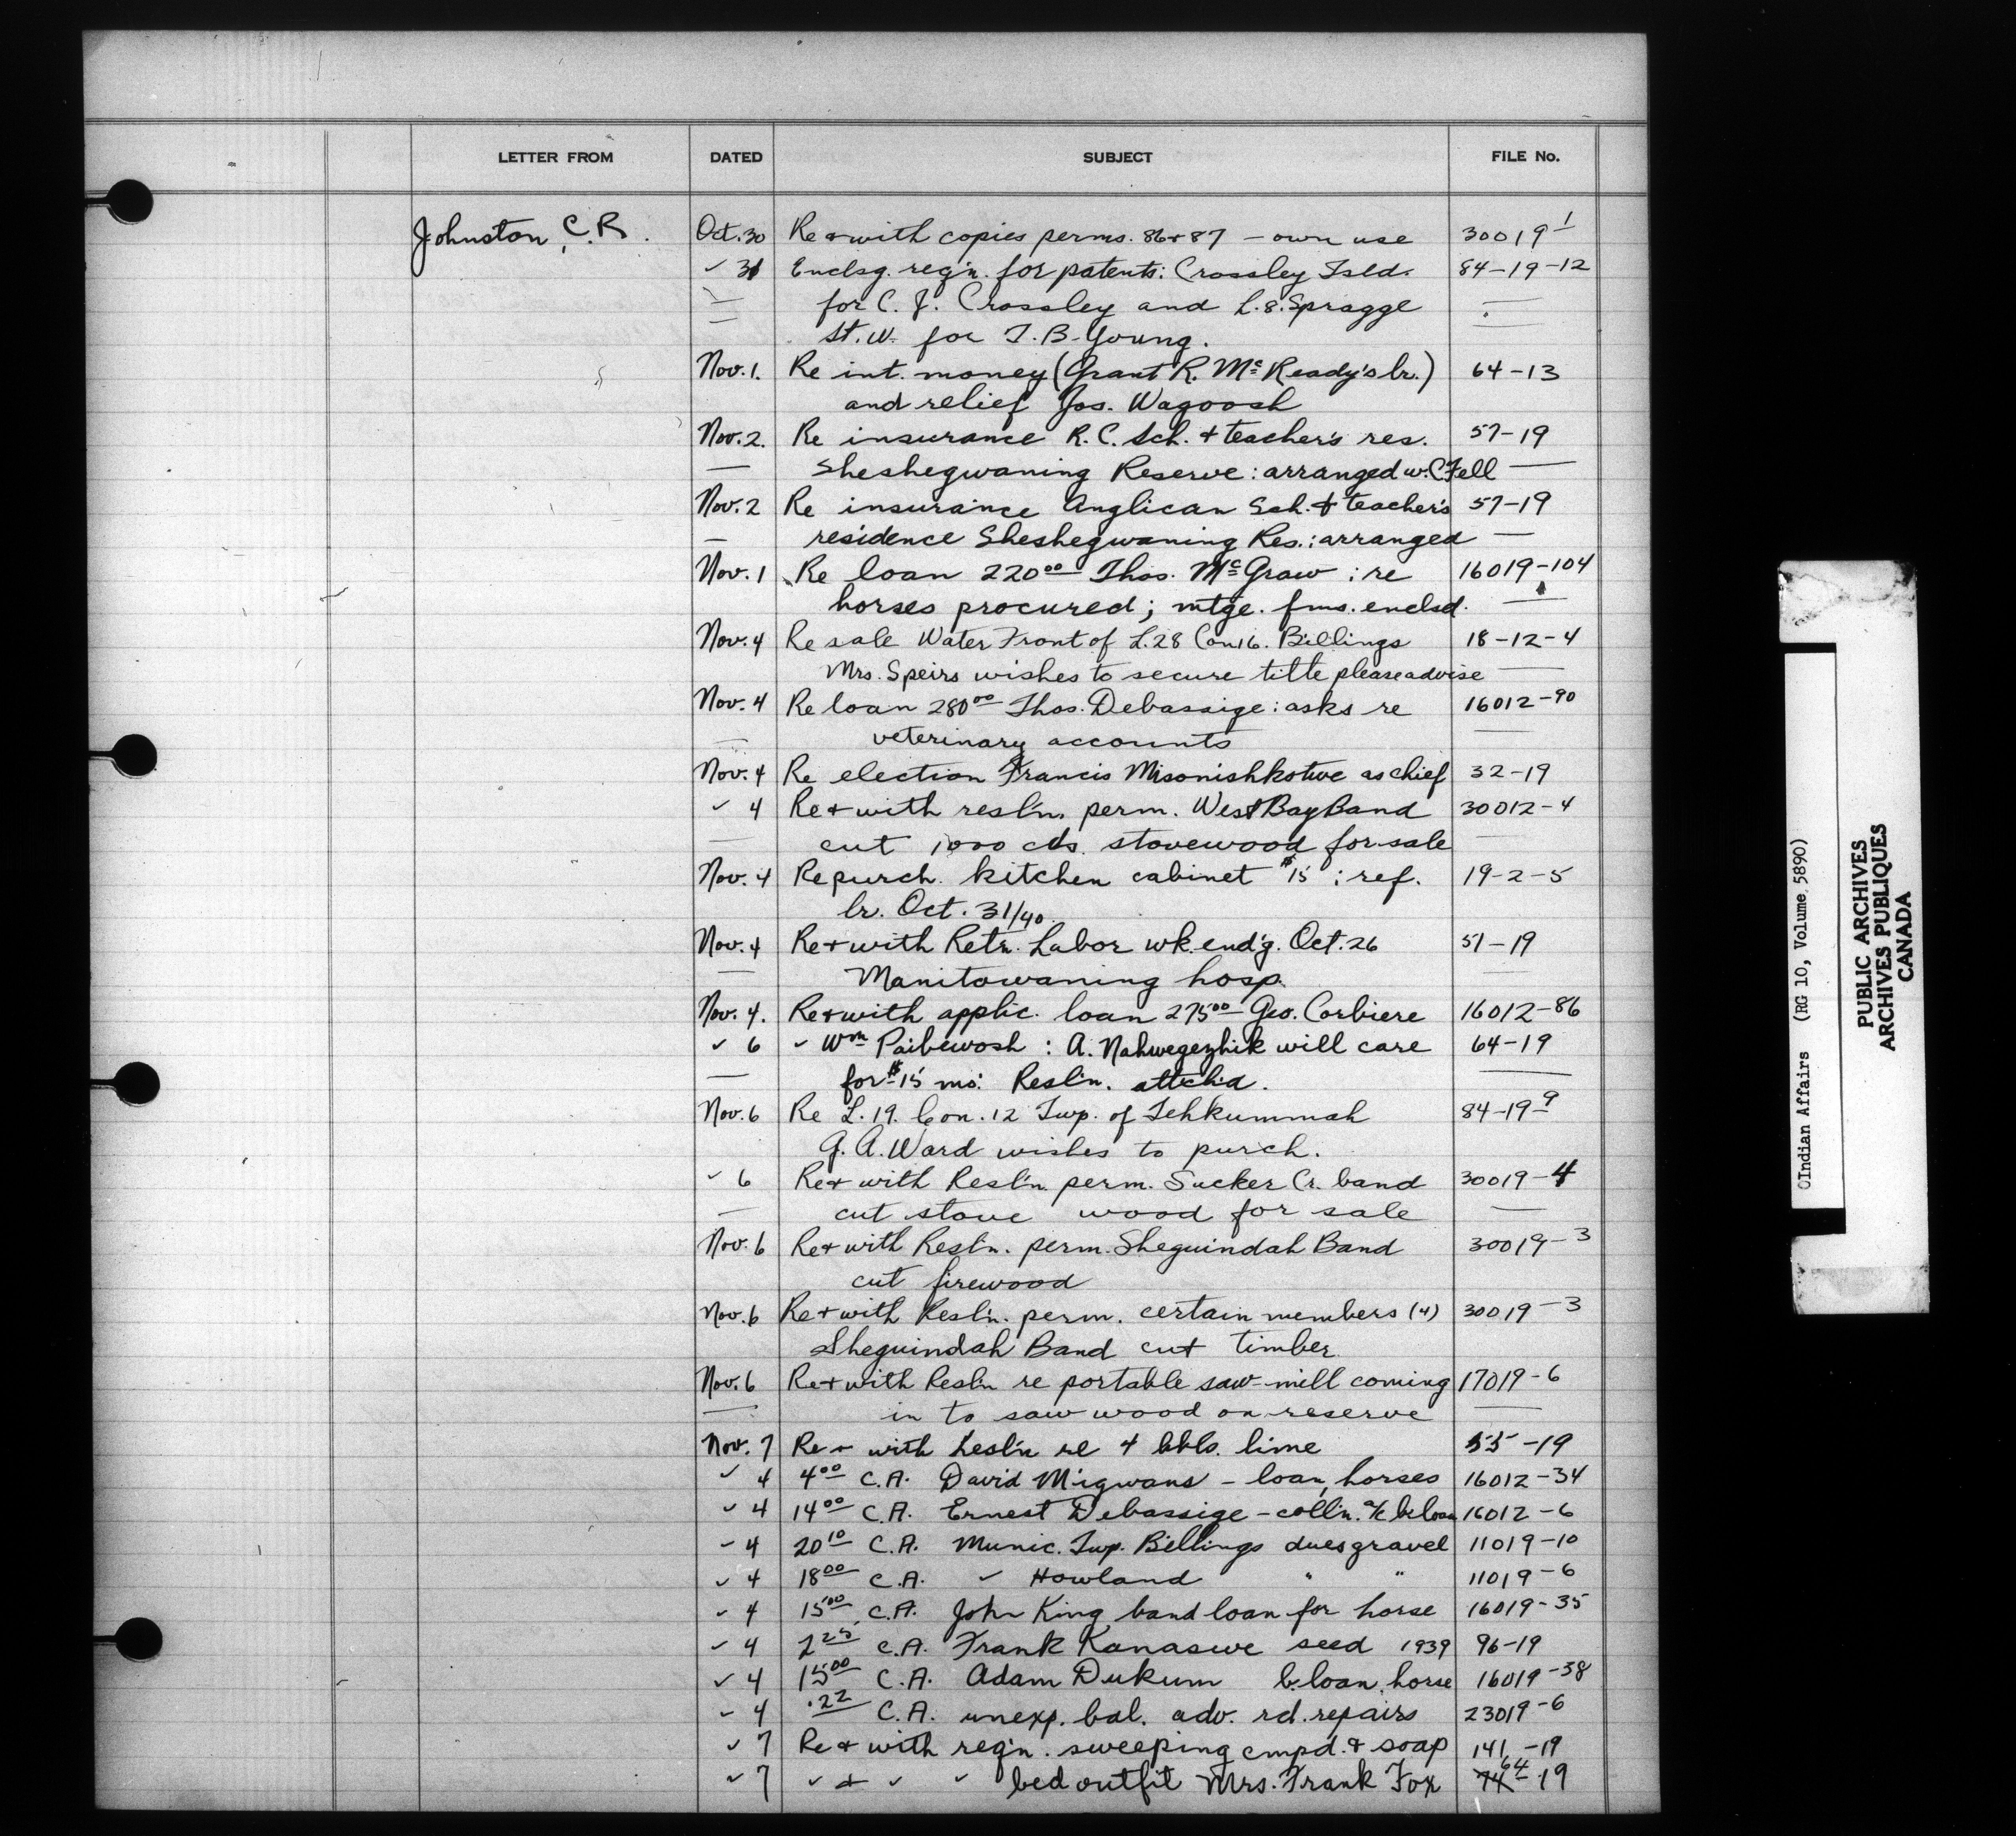 LETTER FROM DATED SUBJECT FILE No.
Johnston, C.R. Oct. 30 Re + with copies perms. 86 + 87 – own use 30019-1
✓ 31 Enclsg. reg'n. for patents: Crossley Isld. 84-19-12
— for C. J. Crossley and L. 8. Spragge —
— St. W. for T. B. Young. —
Nov. 1. Re int. money (Grant R. McKeady's lr.) 64-13
and relief Jos. Wagoosh
Nov. 2. Re insurance R. C. Sch. + teacher's res. 57-19
— Sheshegwaning Reserve: arranged w. C. Fell —
Nov. 2 Re insurance Anglican Sch. + teacher's 57-19
— residence Sheshegwaning Res.: arranged —
Nov. 1 Re loan 220 00 Thos. McGraw : re 16019-104
horses procured; mtge. fms. enclsd. —
Nov. 4 Re sale Water Front of L. 28 Con 16. Billings 18-12-4
Mrs. Speirs wishes to secure title please advise —
Nov. 4 Re loan 280 00 Thos. Debassige: asks re 16012-90
— veterinary accounts —
Nov. 4 Re election Francis Misonishkotwe as chief 32-19
✓ 4 Re + with resl'n. perm. West Bay Band 30012-4
— cut 1000 cds. stovewood for sale —
Nov. 4 Re purch. kitchen cabinet $15 : ref. 19-2-5
lr. Oct. 31/40.
Nov. 4 Re + with Retn. Labor wk. end'g. Oct. 26 51-19
— Manitowaning hosp. —
Nov. 4. Re + with applic. loan 275 00 Geo. Corbiere 16012-86
✓ 6 ✓ Wm Paibewosh : A. Nahwegezhik will care 64-19
— for $15 mo. Resl'n. attch'd. —
Nov. 6 Re L. 19. Con. 12 Twp. of Tehkummah 84-19-9
G. A. Ward wishes to purch.
✓ 6 Re + with Resl'n. perm. Sucker Cr. band 30019-4
— cut stove wood for sale —
Nov. 6 Re + with Resl'n. perm. Sheguindah Band 30019-3
cut firewood
Nov. 6 Re + with Resl'n. perm. certain members (4) 30019-3
Sheguindah Band cut timber
Nov. 6 Re + with Resl'n re portable saw-mill coming 17019-6
— in to saw wood on reserve —
Nov. 7 Re + with Resl'n re 4 bbls. lime 55-19
✓ 4 4 00 C.A. David Migwans – loan, horses 16012-34
✓ 4 14 00 C.A. Ernest Debassige – coll'n. a/c b. loan 16012-6
✓ 4 20 10 C.A. Munic. Twp. Billings dues gravel 11019-10
✓ 4 18 00 C.A. ✓ Howland " " 11019-6
✓ 4 15 00 C.A. John King band loan for horse 16019-35
✓ 4 2 25 C.A. Frank Kanaswe seed 1939 96-19
✓ 4 15 00 C.A. Adam Dukum b. loan, horse 16019-38
✓ 4 .22 C.A. unexp. bal. adv. rd. repairs 23019-6
✓ 7 Re + with reg'n. sweeping cmpd. + soap 141-19
✓ 7 ✓ + ✓ ✓ bed outfit Mrs. Frank Fox 74 64-19
Indian Affairs (RG 10, Volume 5890)
PUBLIC ARCHIVES
ARCHIVES PUBLIQUES
CANADA